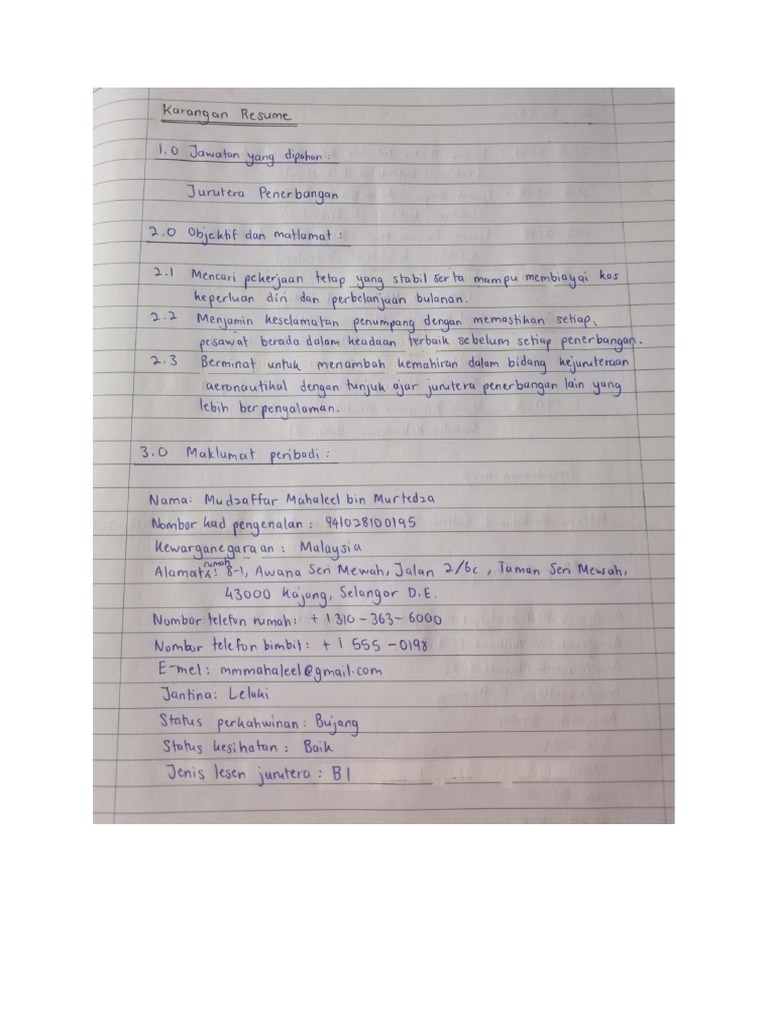 Karangan Resume
1.0 Jawatan yang dipohon :
Jurutera Penerbangan
2.0 Objektif dan matlamat :
2.1 Mencari pekerjaan tetap yang stabil serta mampu membiayai kos
keperluan diri dan perbelanjaan bulanan.
2.2 Menjamin keselamatan penumpang dengan memastikan setiap
pesawat berada dalam keadaan terbaik sebelum setiap penerbangan.
2.3 Berminat untuk menambah kemahiran dalam bidang kejuruteraan
aeronautikal dengan tunjuk ajar jurutera penerbangan lain yang
lebih berpengalaman.
3.0 Maklumat peribadi :
Nama: Mudzaffar Mahaleel bin Murtedza
Nombor kad pengenalan : 941028100195
Kewarganegaraan : Malaysia
Alamat rumah : 8-1, Awana Seri Mewah, Jalan 2/6c, Taman Seri Mewah,
43000 Kajang, Selangor D.E.
Nombor telefon rumah: +1310-363-6000
Nombor telefon bimbit: +1 555-0198
E-mel : mmmahaleel@gmail.com
Jantina: Lelaki
Status perkahwinan : Bujang
Status kesihatan : Baik
Jenis lesen jurutera : B1